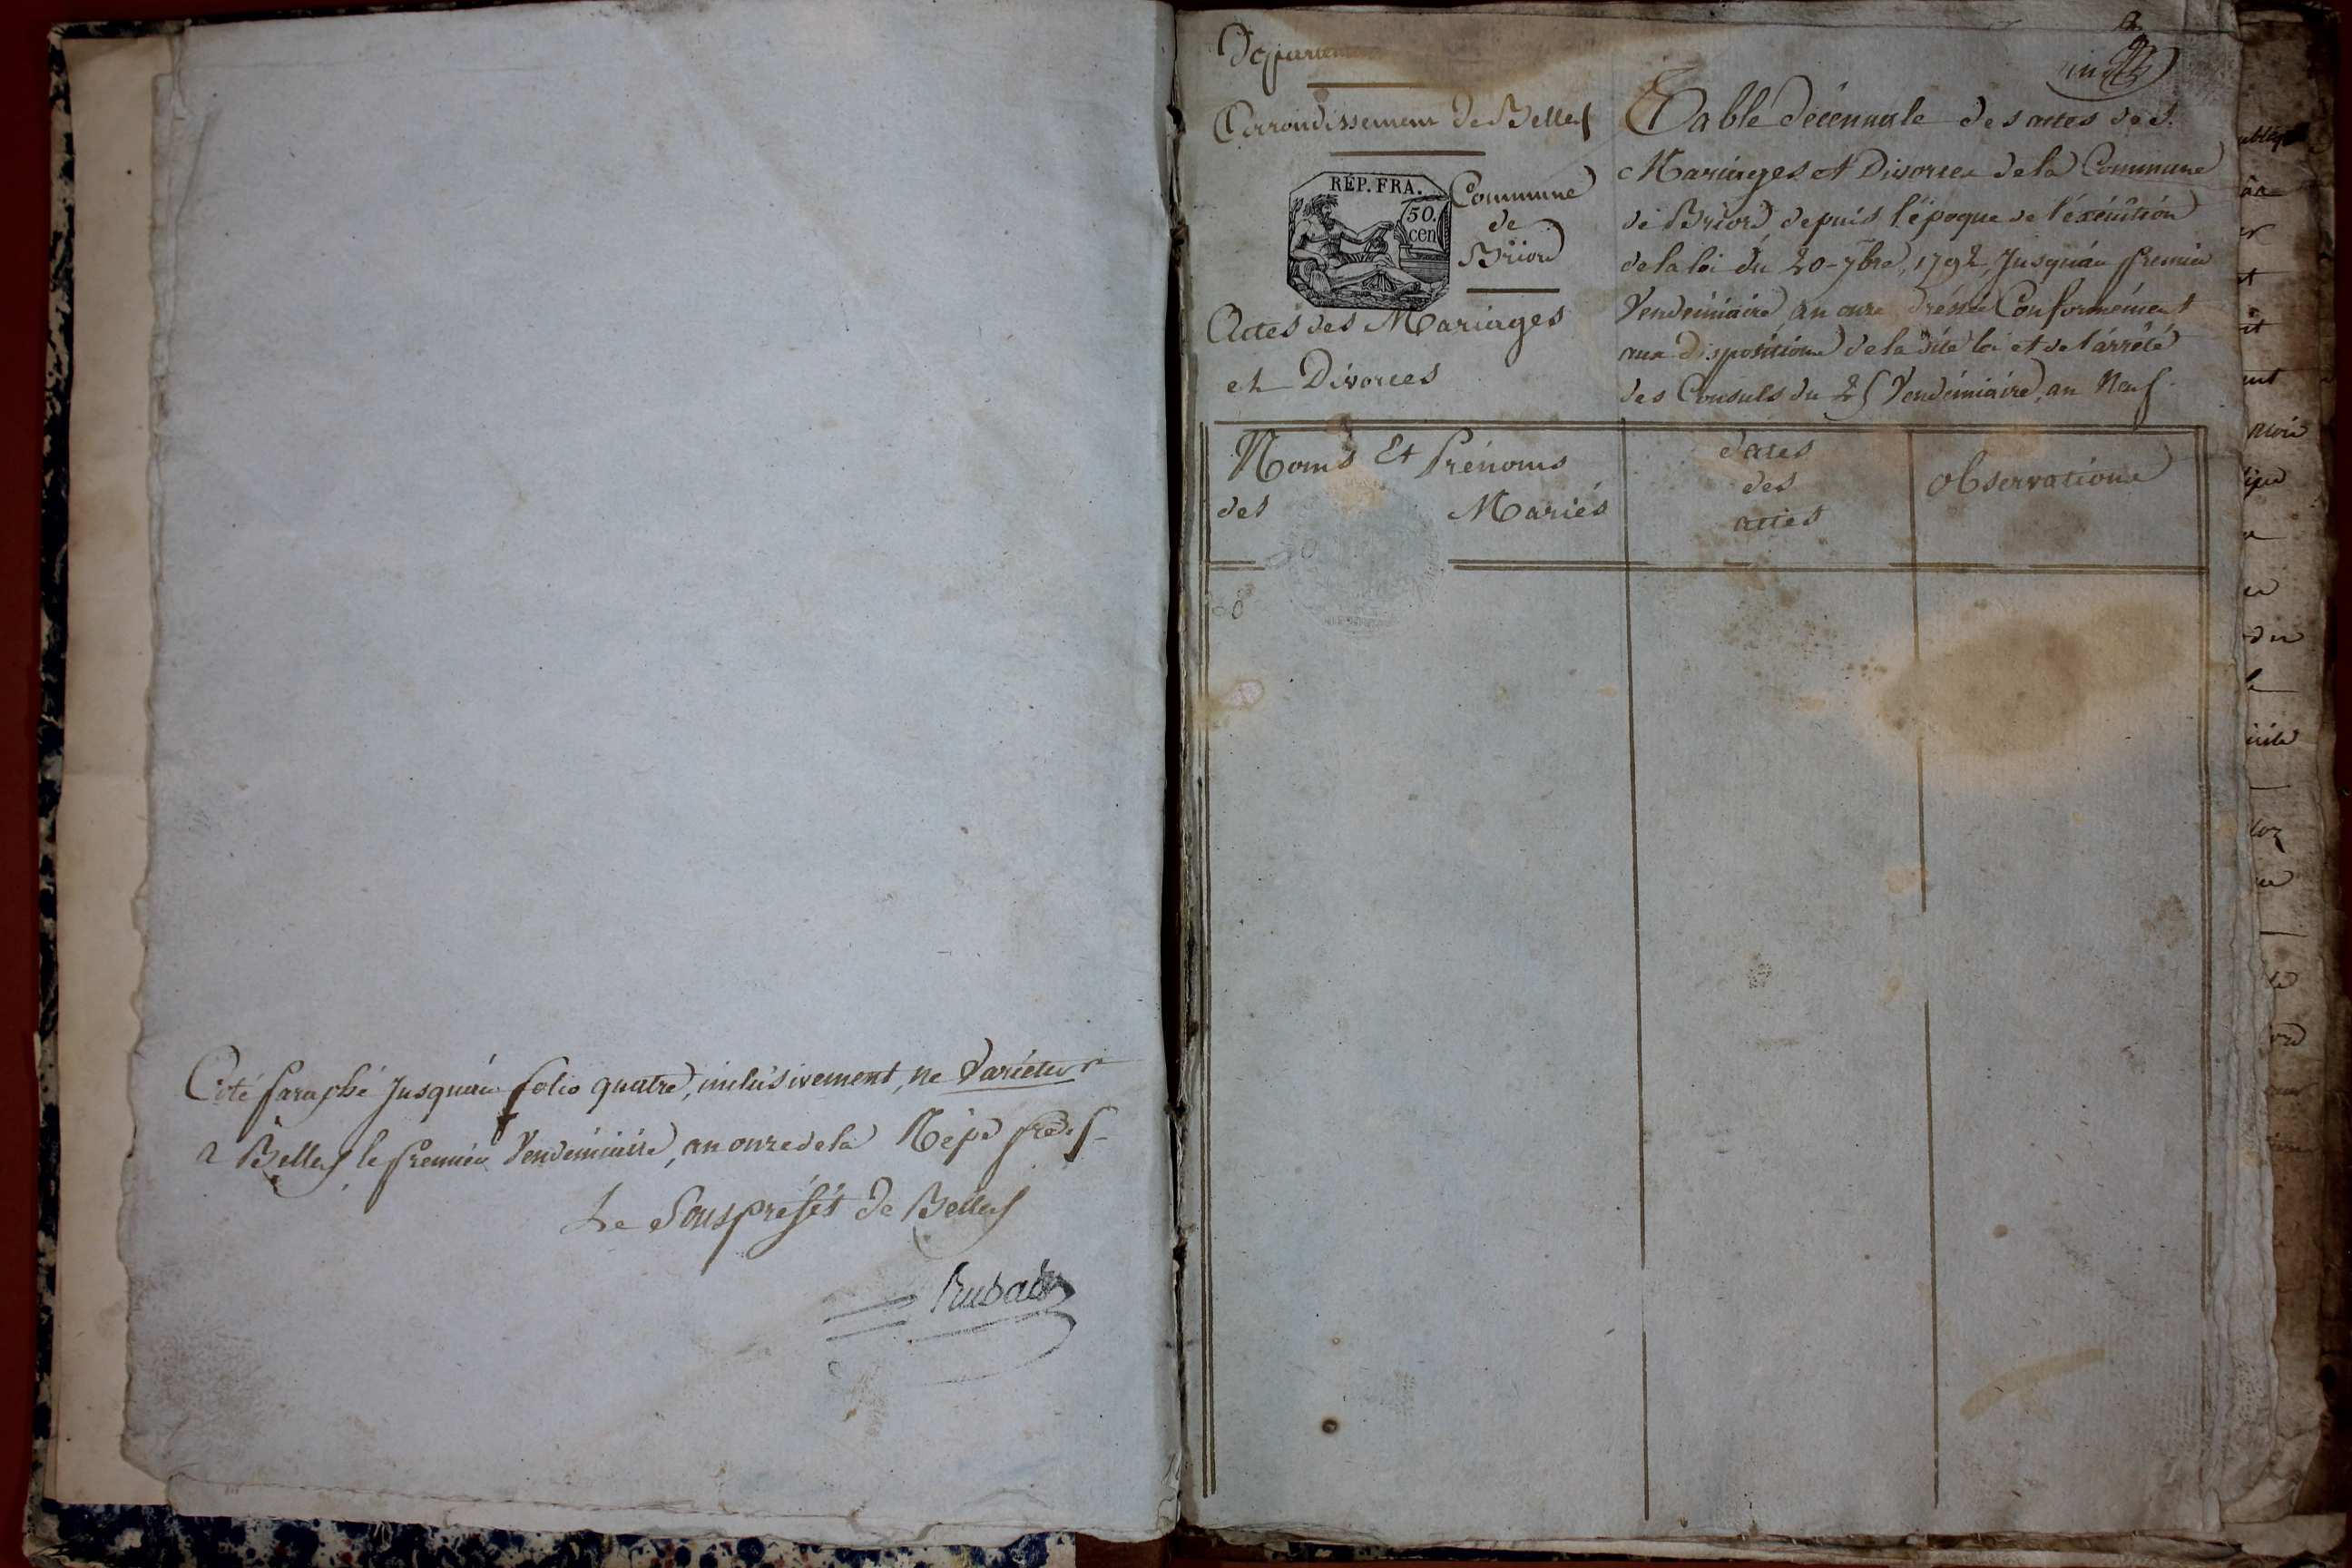 Coté paraphé Jusqu'au folio quatre, inclusivement, ne Varietur
a Belley le premier Vendémiaire, an onze de la Répe frse
Le Sousprefét de Belley
Rubat
Département
Arrondissement de Belley
RÉP. FRA.
50.
cen
Commune
de
Briord
Actes des Mariages
et Divorces
Table décennale des actes des
Mariages et Divorces de la Commune
de Briord depuis l'époque de l'éxécution
de la loi du 20 7bre, 1792, Jusqu'au premier
Vendémiaire an onze dressée Conformément
aux Dispositions de la dite loi et de l'arrêté
des Consuls du 25 Vendémiaire, an Neuf
Noms Et Prénoms
des Mariés
dates
des
actes
observations